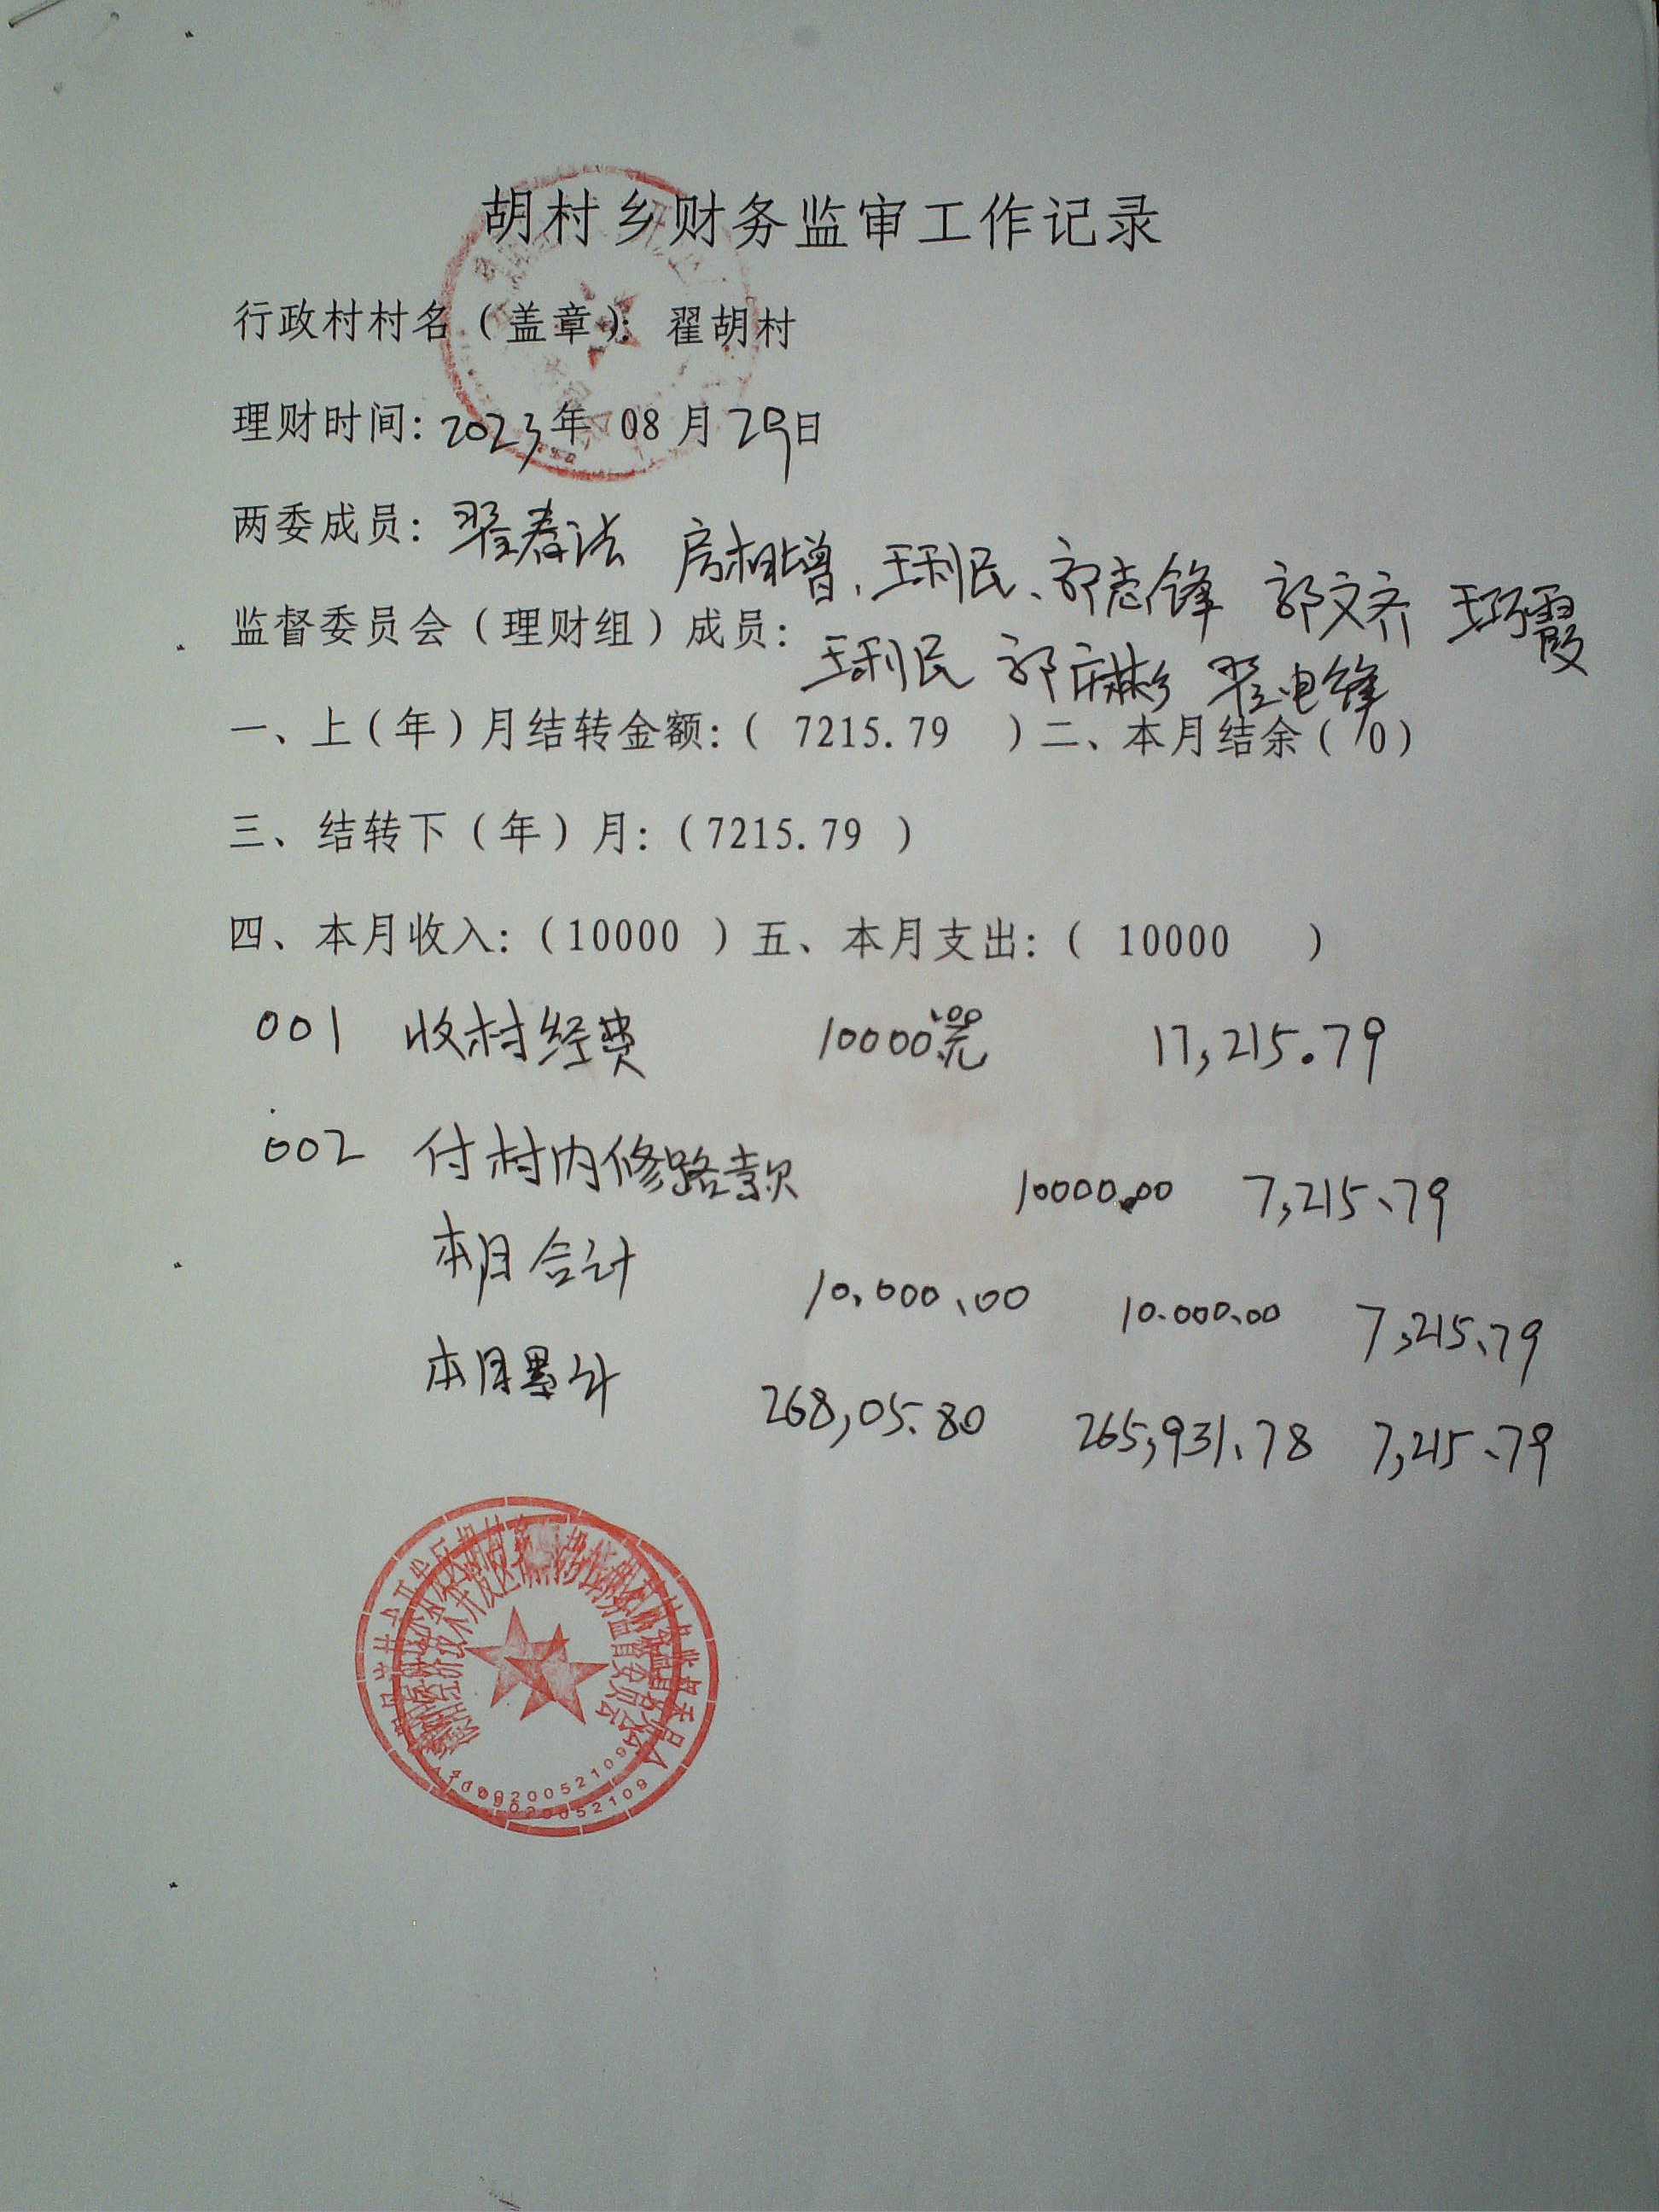 胡村乡财务监审工作记录
行政村村名（盖章）：翟胡村
理财时间：2023年 08月29日
两委成员：翟春法 房相增、王利民、郭志锋 郭文齐 王巧霞
监督委员会（理财组）成员：王利民 郭庆彬 翟电锋
一、上（年）月结转金额：（ 7215.79 ）二、本月结余（ 0）
三、结转下（年）月：（7215.79 ）
四、本月收入：（10000 ）五、本月支出：（ 10000 ）
001 收村经费 10000.00元 17,215.79
002 付村内修路款 10000.00 7,215.79
本月合计 10,000.00 10.000.00 7,215.79
本月累计 268,05.80 265,931.78 7,215.79